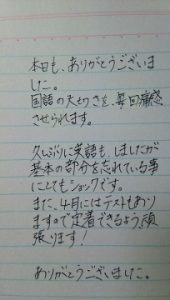 本日も、ありがとうございま
した。
国語の大切さを、毎回痛感
させられます。
久しぶりに英語も、しましたが
基本の部分を忘れている事
にとてもショックです。
また、4月にはテストもあり
ますので定着できるよう頑
張ります！
ありがとうございました。